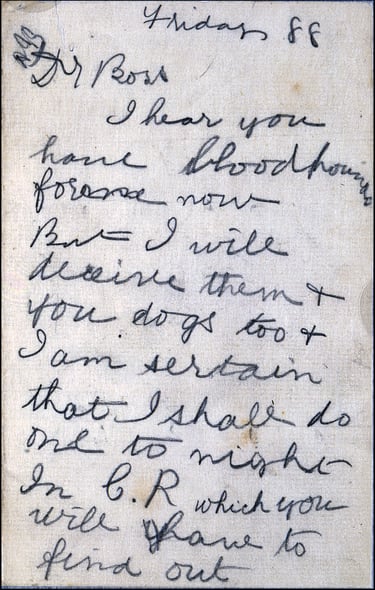 Friday 88
Dr Boss
I hear you
have bloodhounds
for me now
But I will
deceive them +
you dogs too +
I am sertain
that I shall do
one to night
In C. R which you
will have to
find out